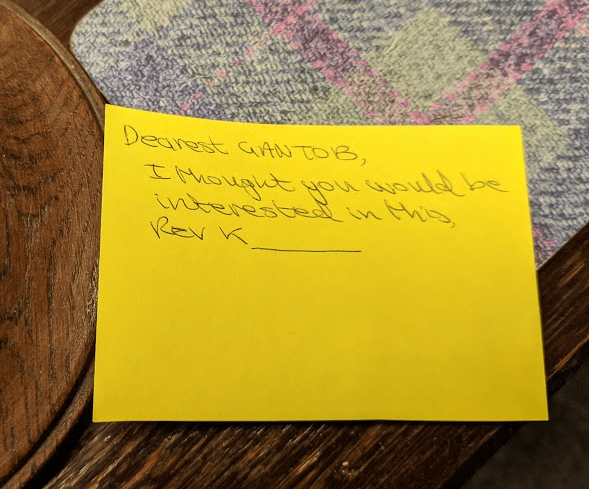 Dearest GANTOB,
I thought you would be
interested in this,
Rev K ________